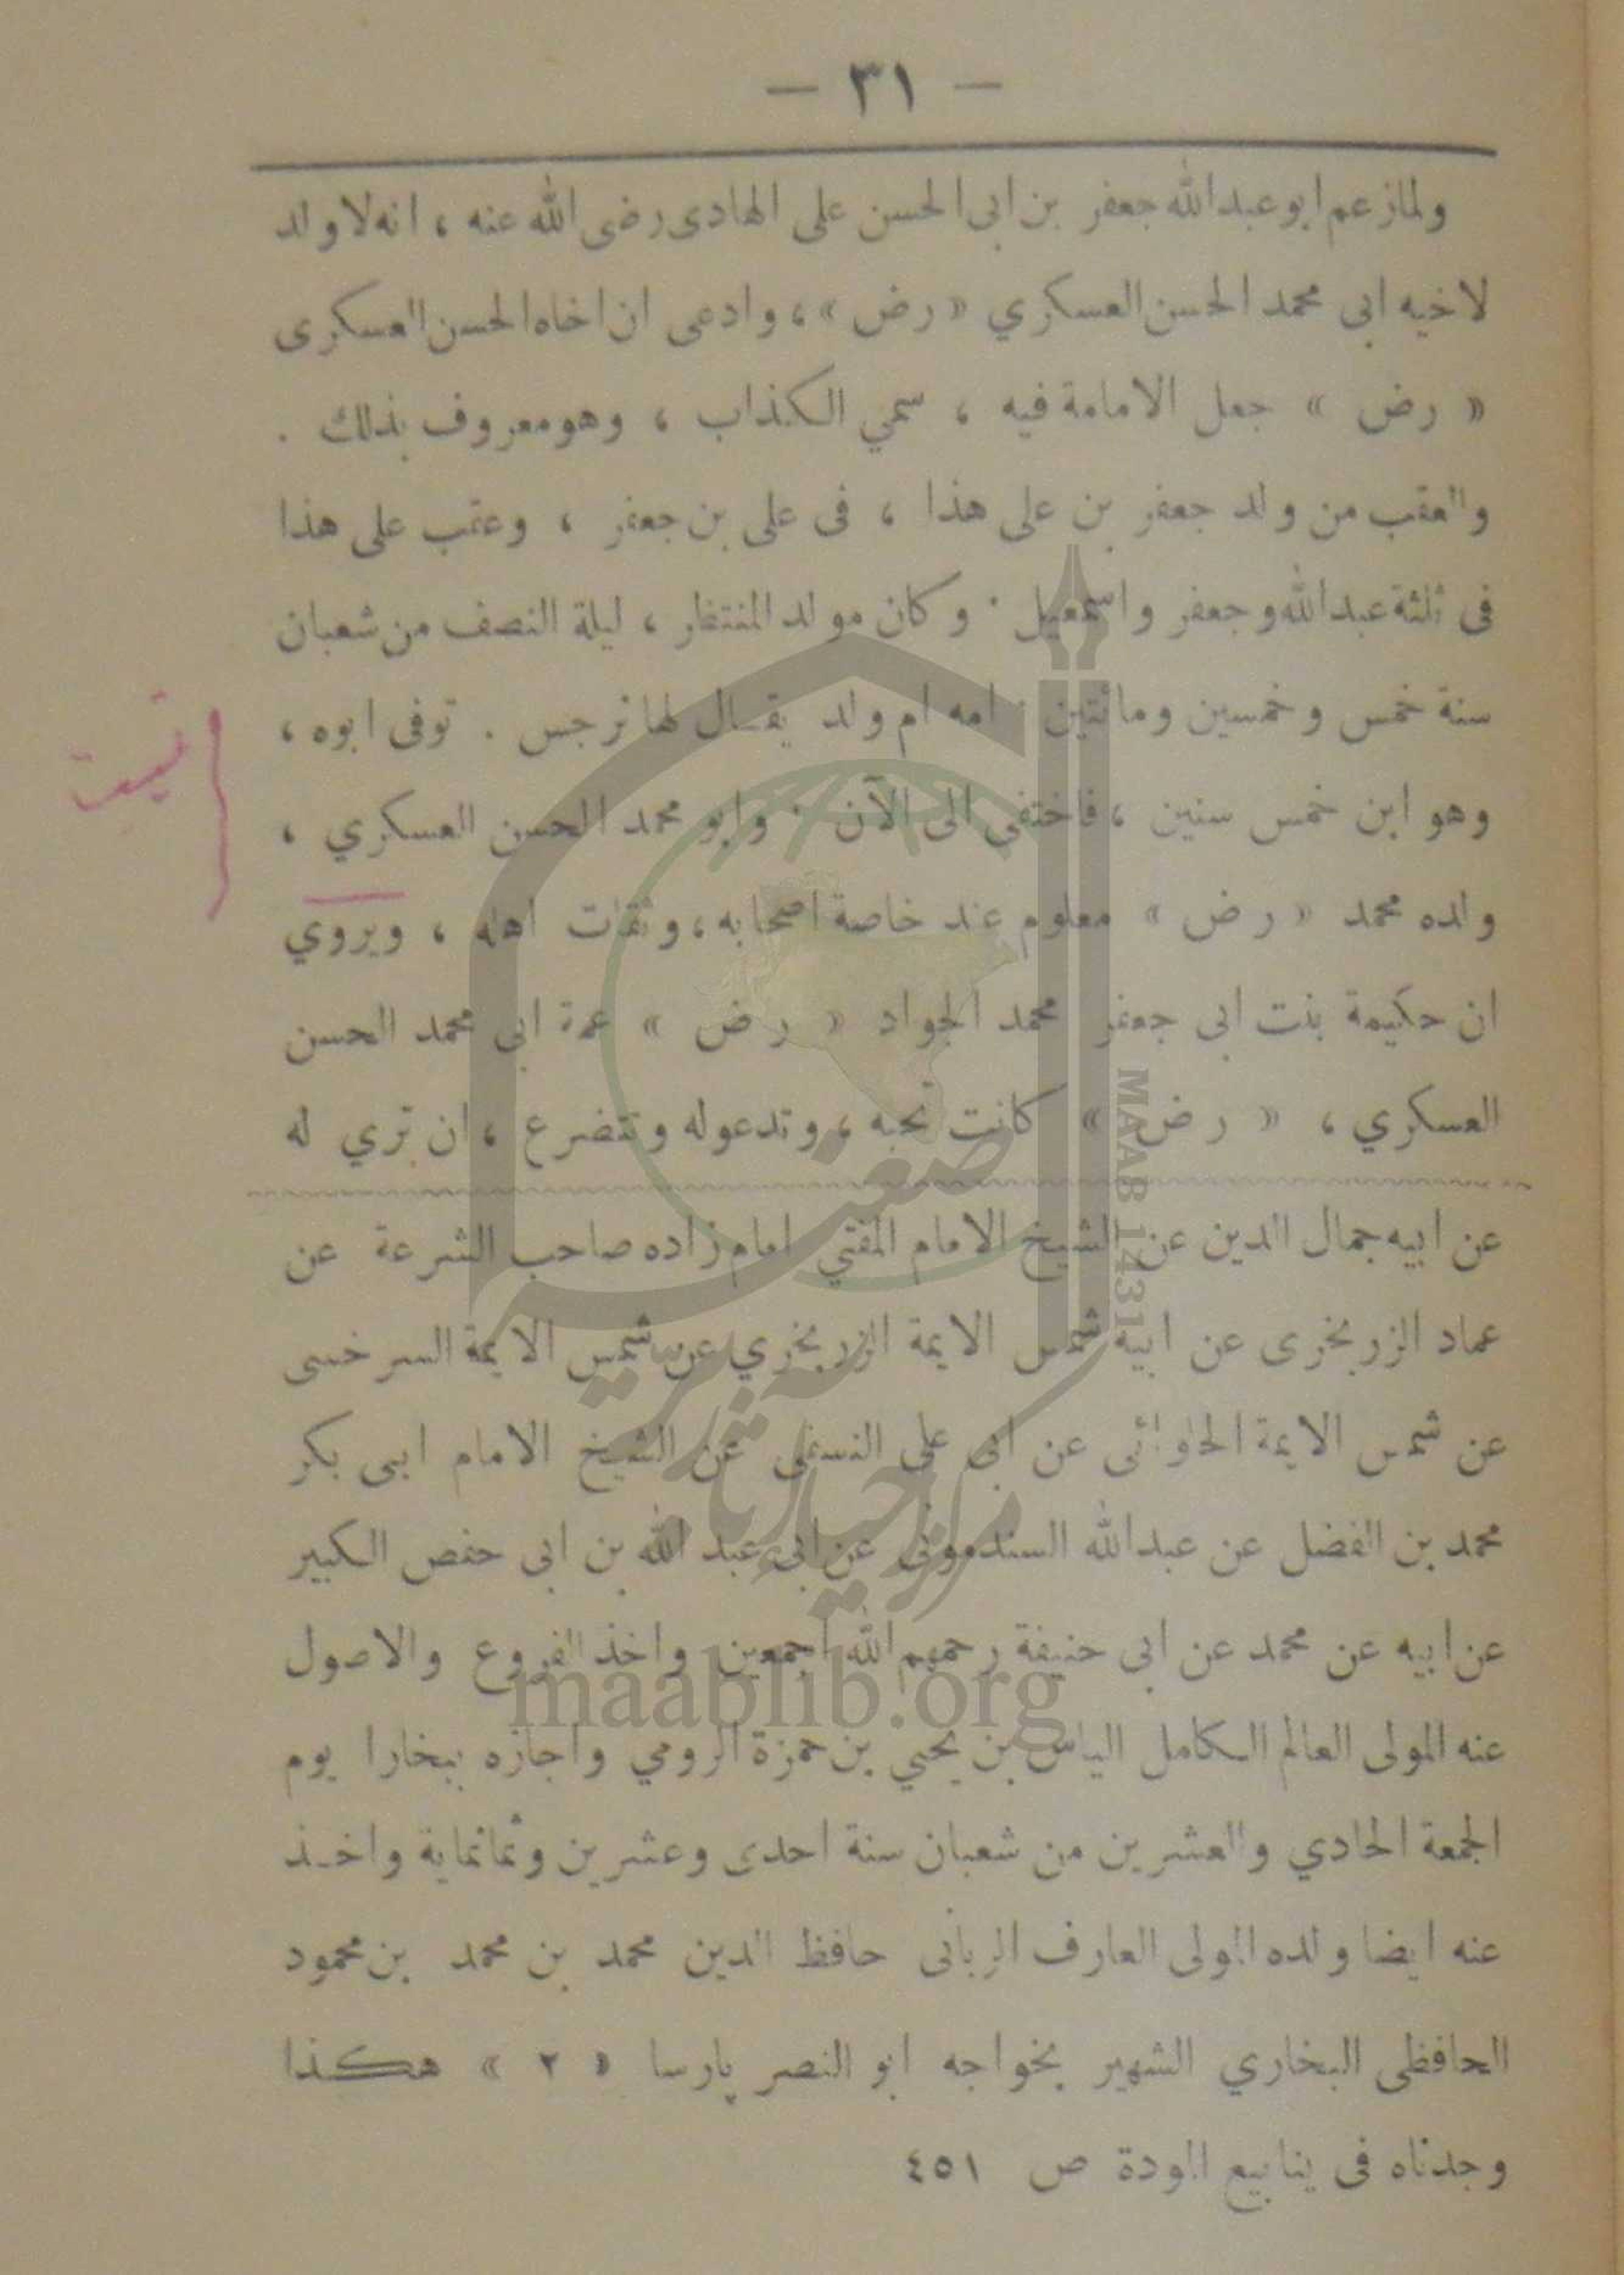 — ٣١ —
ولما زعم ابو عبدالله جعفر بن ابى الحسن على الهادى رضى الله عنه ، انه لا ولد
لاخيه ابى محمد الحسن العسكري « رض » ، وادعى ان اخاه الحسن العسكرى
« رض » جعل الامامة فيه ، سمي الكذاب ، وهو معروف بذلك .
والعقب من ولد جعفر بن على هذا ، فى على بن جعفر ، وعقب على هذا
فى ثلثة عبدالله وجعفر واسمعيل . وكان مولد المنتظر ، ليلة النصف من شعبان
سنة خمس وخمسين ومائتين . امه ام ولد يقال لها نرجس . توفى ابوه ،
وهو ابن خمس سنين ، فاختفى الى الآن . وابو محمد الحسن العسكري ،
ولده محمد « رض » معلوم عند خاصة اصحابه ، وثقات اهله ، ويروي
ان حكيمة بنت ابى جعفر محمد الجواد « رض » عمة ابى محمد الحسن
العسكري ، « رض » كانت تحبه ، وتدعوله وتتضرع ، ان تري له
عن ابيه جمال الدين عن الشيخ الامام المفتي امام زاده صاحب الشرعة عن
عماد الزرنخرى عن ابيه شمس الايمة الزرنخري عن شمس الايمة السرخسى
عن شمس الايمة الحلوائى عن ابى على النسفى عن الشيخ الامام ابى بكر
محمد بن الفضل عن عبدالله السندمونى عن ابى عبد الله بن ابى حفص الكبير
عن ابيه عن محمد عن ابى حنيفة رحمهم الله اجمعين واخذ الفروع والاصول
عنه المولى العالم الكامل الياس بن يحيي بن حمزة الرومي واجازه ببخارا يوم
الجمعة الحادي والعشرين من شعبان سنة احدى وعشرين وثمانماية واخذ
عنه ايضا ولده المولى العارف الربانى حافظ الدين محمد بن محمد بن محمود
الحافظى البخاري الشهير بخواجه ابو النصر پارسا « ٢ » هكذا
وجدناه فى ينابيع المودة ص ٤٥١
MAAB 1431
maablib.org